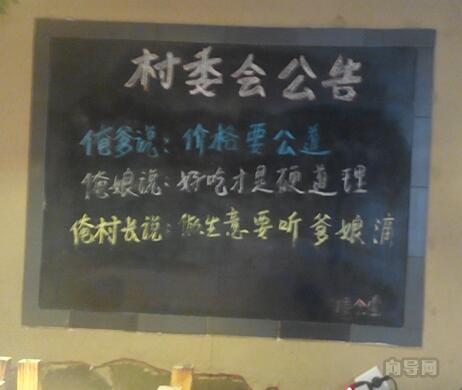 村委会公告
俺爹说：价格要公道
俺娘说：好吃才是硬道理
俺村长说：做生意要听爹娘滴
向导网